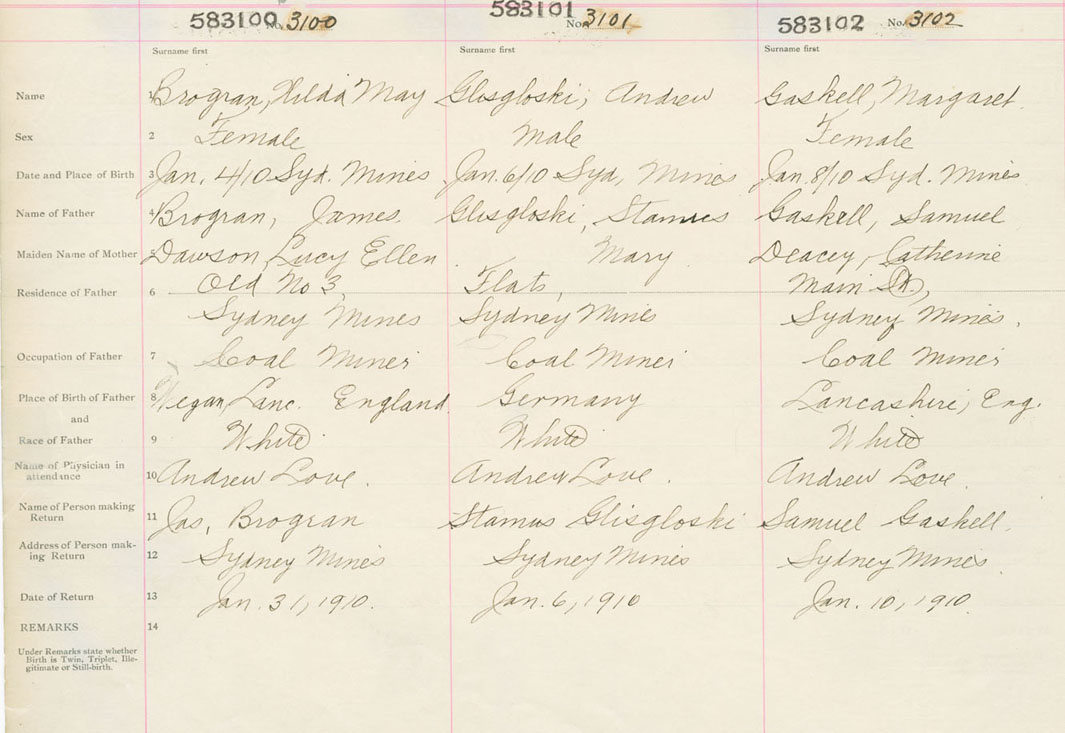 583100 No. 3100 583101 No. 3101 583102 No. 3102
Surname first Surname first Surname first
Name 1 Brogran, Hilda May Glisgloski, Andrew Gaskell, Margaret
Sex 2 Female Male Female
Date and Place of Birth 3 Jan. 4/10 Syd. Mines Jan. 6/10 Syd, Mines Jan. 8/10 Syd. Mines
Name of Father 4 Brogran, James. Glisgloski, Stamus Gaskell, Samuel
Maiden Name of Mother 5 Dawson, Lucy Ellen Mary Deacey, Catherine
Residence of Father 6 Old No 3, Flats, Main St.,
Sydney Mines Sydney Mines Sydney Mines.
Occupation of Father 7 Coal Miner Coal Miner Coal Miner
Place of Birth of Father 8 Wegan, Lanc. England Germany Lancashire, Eng.
and
Race of Father 9 White White White
Name of Physician in 10 Andrew Love. Andrew Love. Andrew Love.
attendance
Name of Person making
Return 11 Jas, Brogran Stamus Glisgloski Samuel Gaskell.
Address of Person mak-
ing Return 12 Sydney Mines Sydney Mines Sydney Mines.
Date of Return 13 Jan. 31, 1910. Jan. 6, 1910 Jan. 10, 1910.
REMARKS 14
Under Remarks state whether
Birth is Twin, Triplet, Ille-
gitimate or Still-birth.